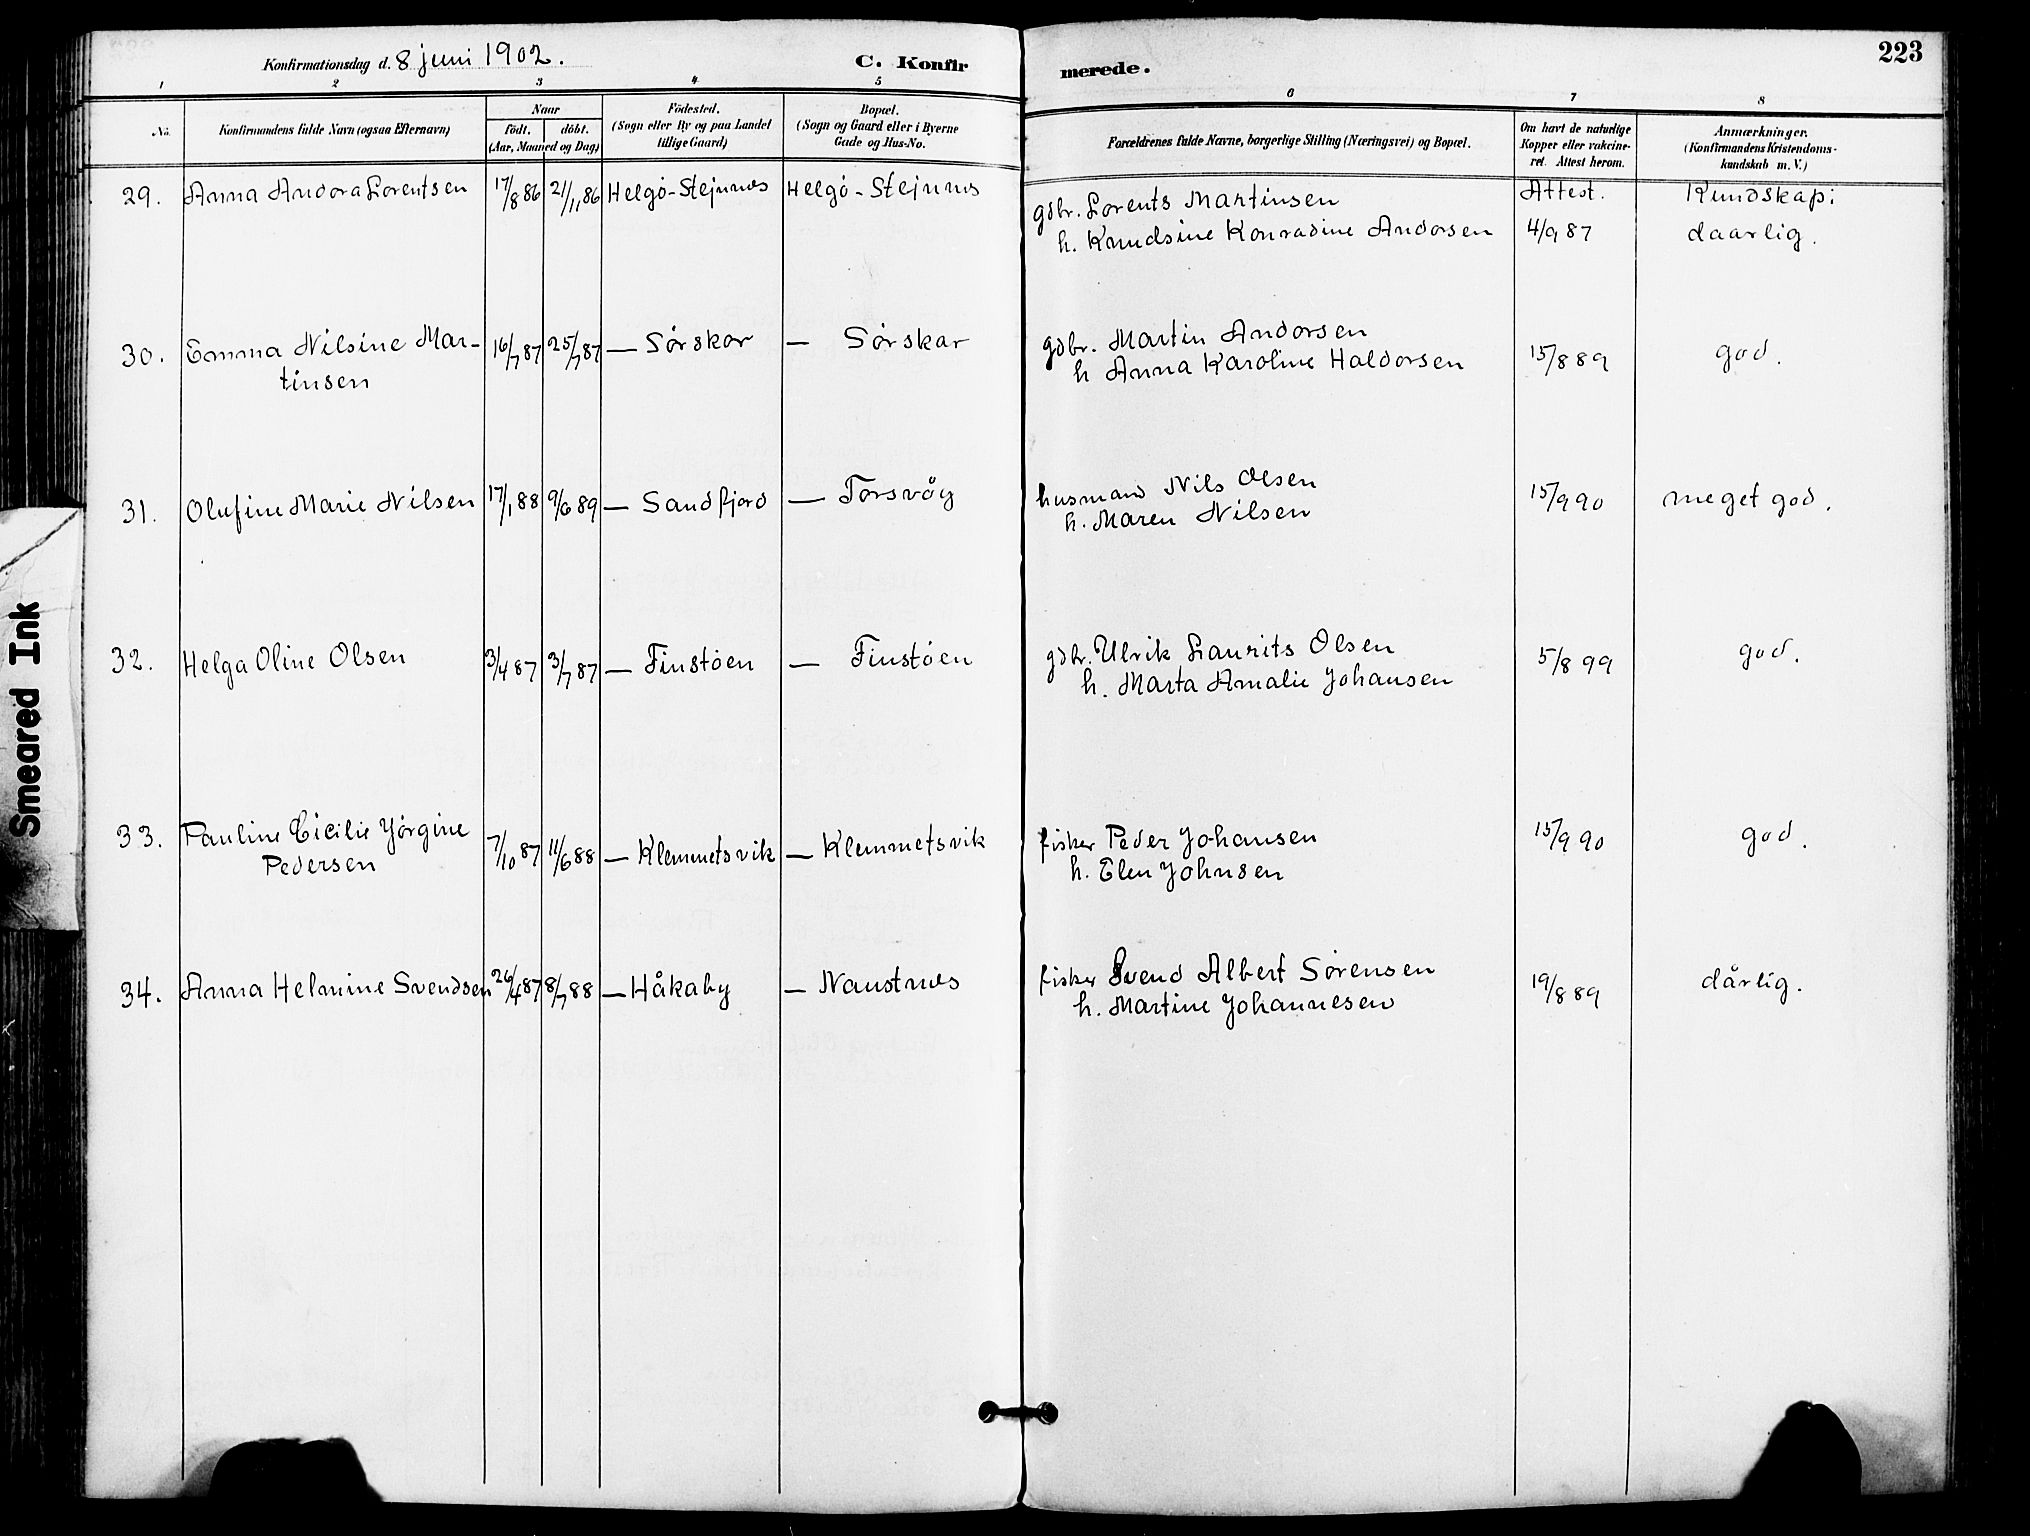 Konfirmationsdag d. 8 juni 1902.
C. Konfir
merede.
223
1 2 3 4 5 6 7 8
No.
Konfirmandens fulde Navn (ogsaa Efternavn)
Naar
födt. döbt.
(Aar, Maaned og Dag)
Födested.
(Sogn eller By og paa Landet
tillige Gaard)
Bopæl.
(Sogn og Gaard eller i Byerne
Gade og Hus-No.
Forældrenes fulde Navne, borgerlige Stilling (Næringsvei) og Bopæl.
Om havt de naturlige
Kopper eller vakcine-
ret. Attest herom.
Anmærkninger.
(Konfirmandens Kristendoms-
kundskab m. V.)
29. Anna Andora Lorentsen 17/8 86 21/11 86 Helgö-Stejnnæs Helgö-Stejnnæs gdbr. Lorents Martinsen Attest. Kundskap:
h. Knudsine Konradine Andorsen 4/9 87 daarlig.
30. Emma Nilsine Mar- 16/7 87 25/7 87 — Sørskar — Sørskar gdbr. Martin Andorsen 15/8 89 god.
tinsen h Anna Karoline Haldorsen
31. Olufine Marie Nilsen 17/1 88 9/6 89 — Sandfjord — Torsvåg husmand Nils Olsen 15/9 90 meget god.
h. Maren Nilsen
32. Helga Oline Olsen 3/4 87 3/7 87 — Finstöen — Finstöen gdbr. Ulrik Laurits Olsen 5/8 99 god.
h. Marta Amalie Johansen
33. Pauline Cicilie Jörgine 7/10 87 11/6 88 — Klemmetsvik — Klemmetsvik fisker Peder Johansen 15/9 90 god.
Pedersen h. Elen Johnsen
34. Anna Helmine Svendsen 26/4 87 8/7 88 — Håkaby — Naustnæs fisker Svend Albert Sørensen 19/8 89 dårlig.
h. Martine Johannesen
Smeared Ink